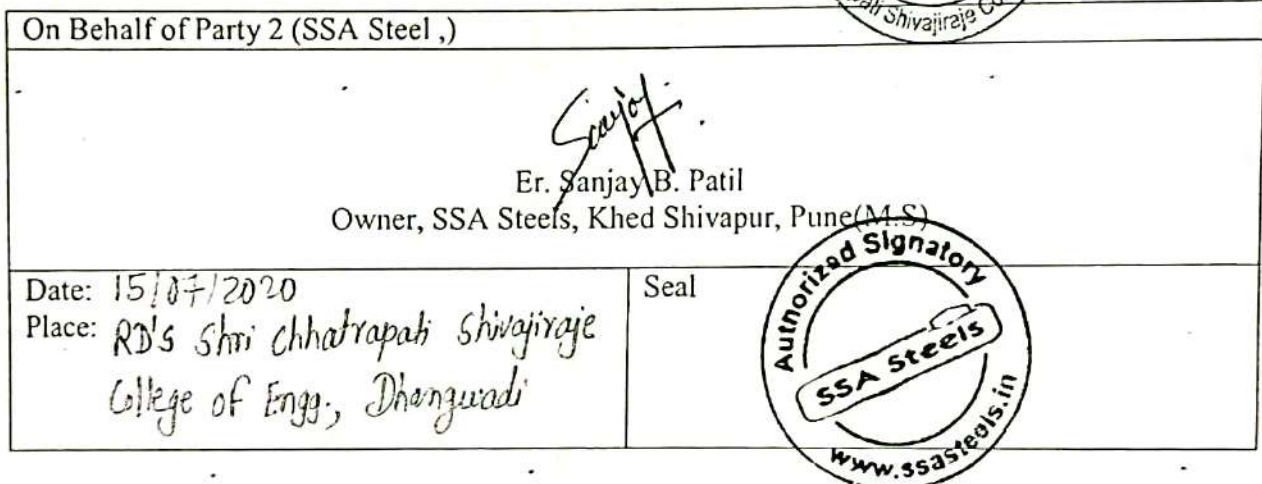 Shivajiraje
On Behalf of Party 2 (SSA Steel ,)
Er. Sanjay B. Patil
Owner, SSA Steels, Khed Shivapur, Pune(M.S)
Date: 15/07/2020
Seal
Place: RD's Shri Chhatrapati Shivajiraje
College of Engg., Dhangwadi
Authorized Signatory
SSA Steels
www.ssasteels.in